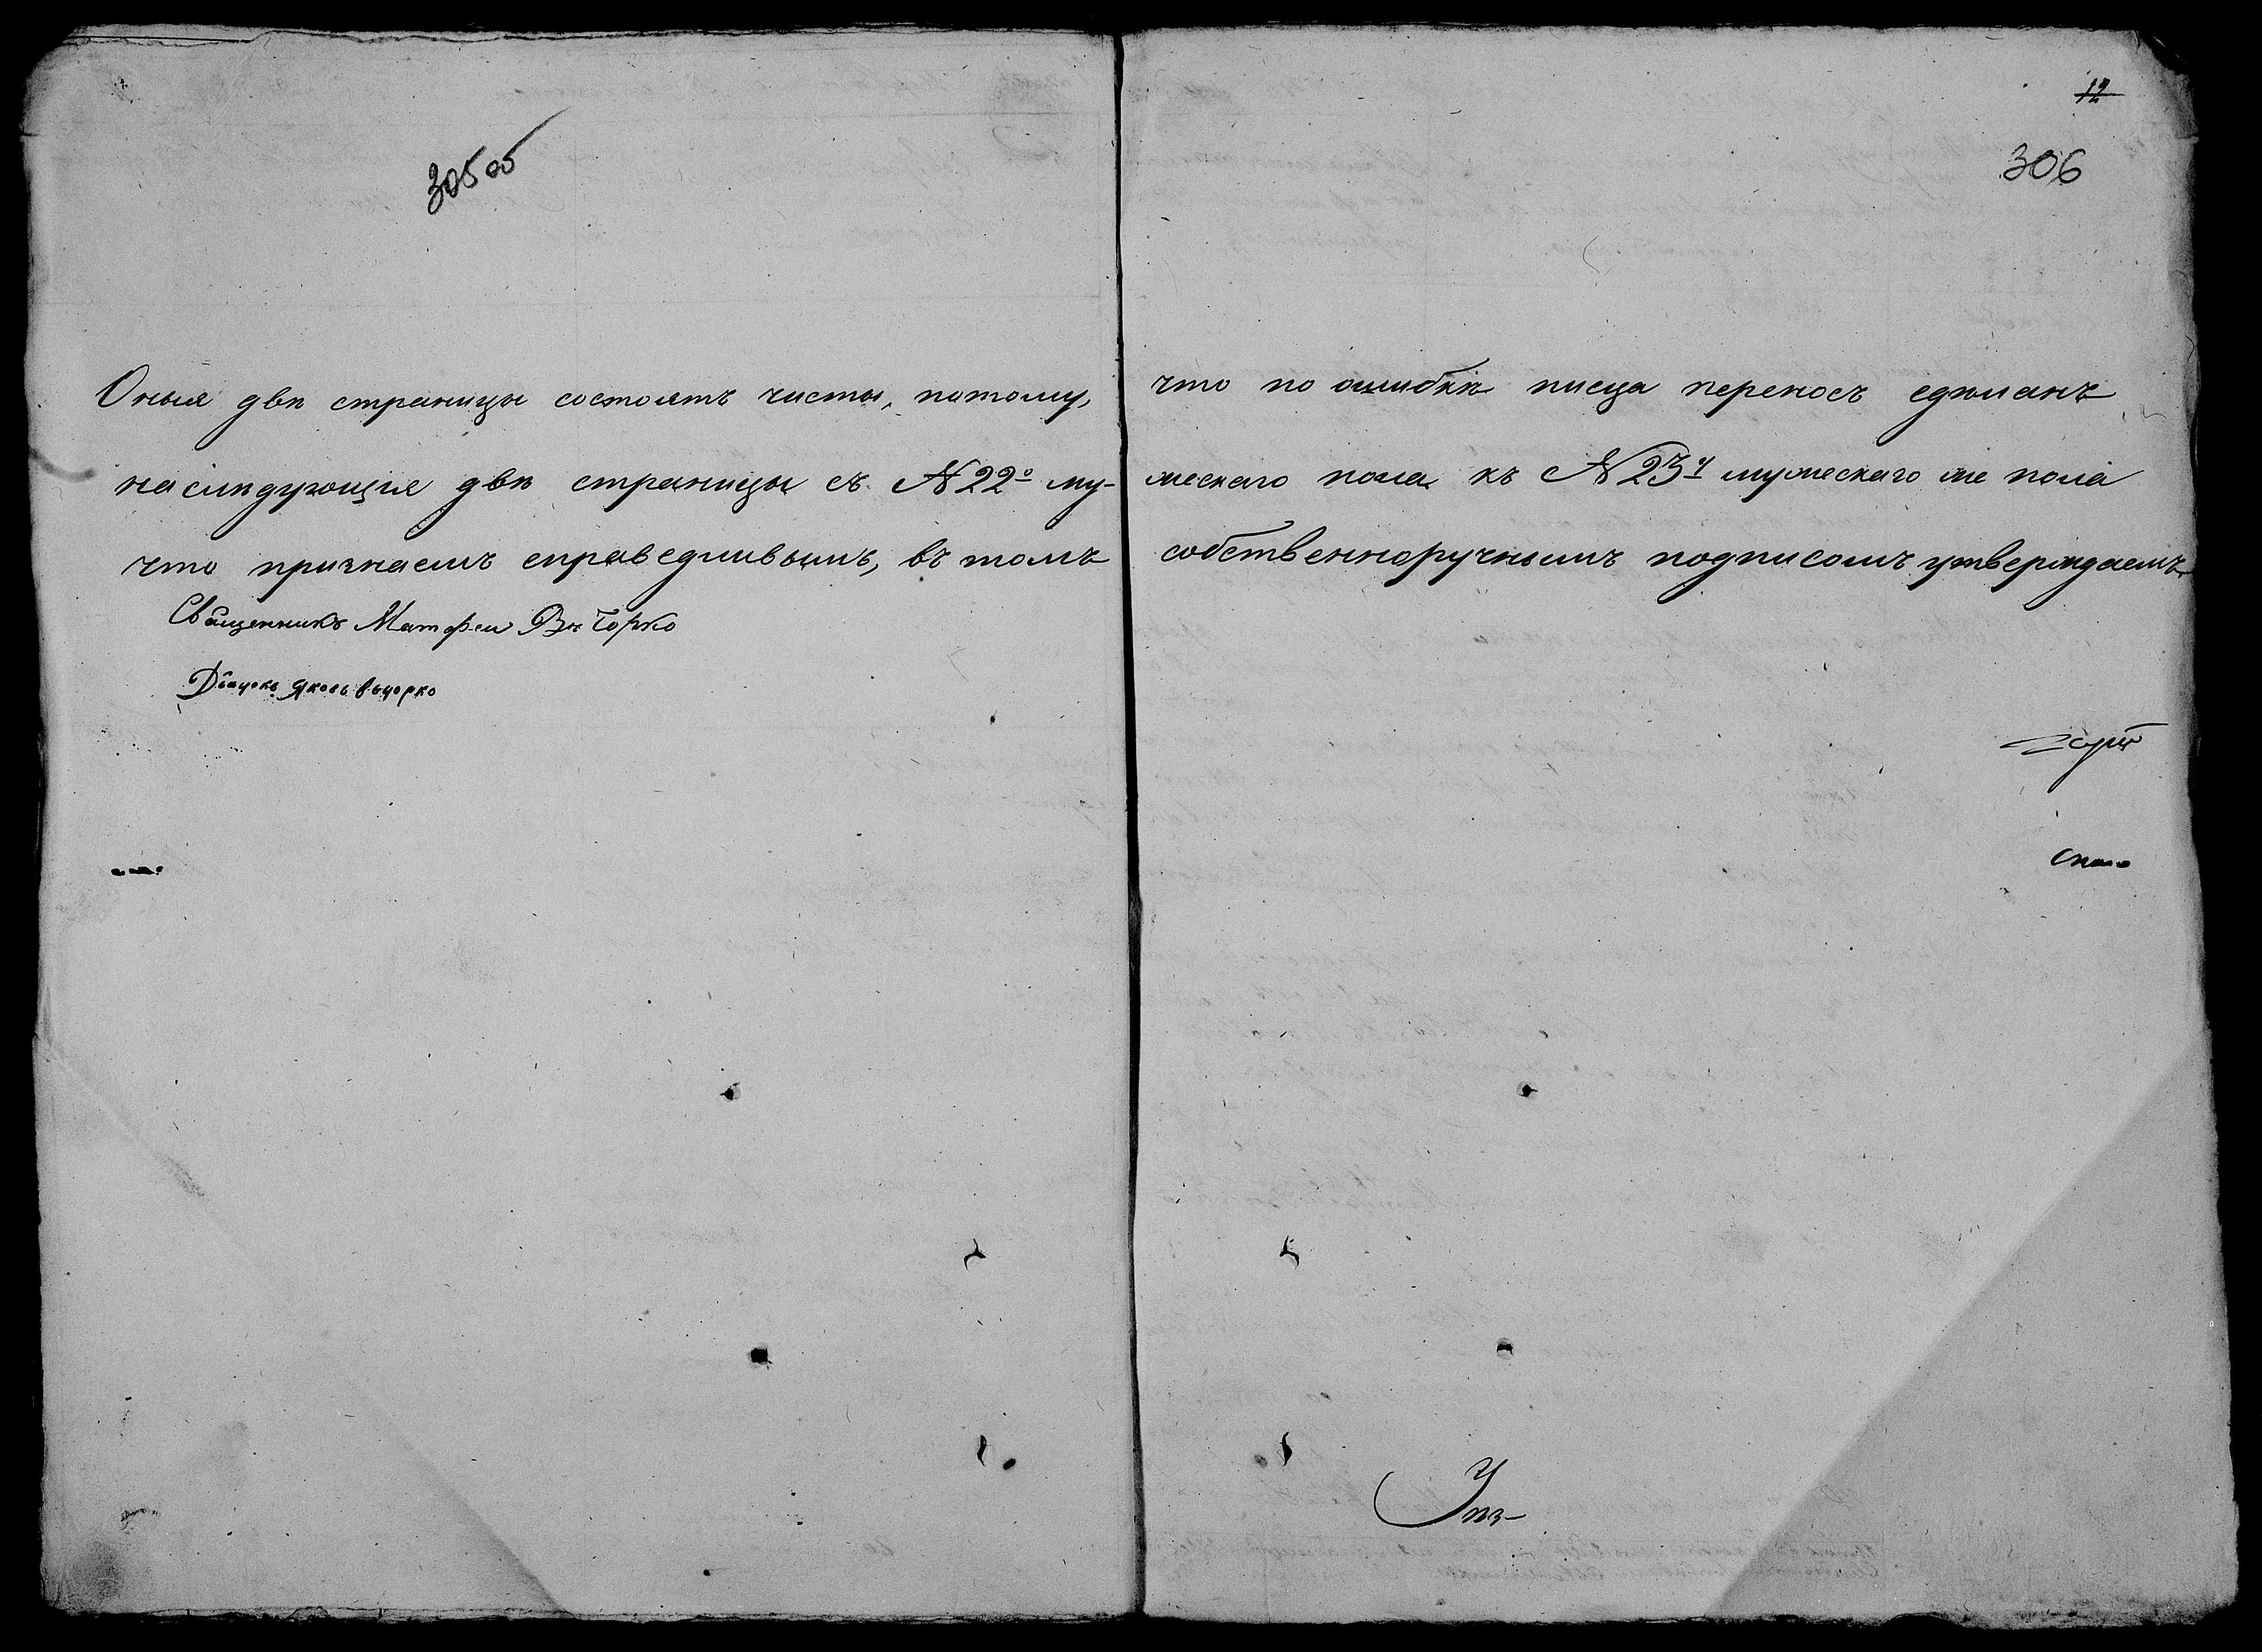 305 об
12
306
Оныя двѣ страницы состоятъ чисты, потому,
что по ошибкѣ писца переносъ сдѣланъ
на слѣдующія двѣ страницы съ N 22º му-
жескаго пола къ N 23у мужескаго же пола
что признаемъ справедливымъ, въ томъ
собственноручнымъ подписомъ утверждаемъ
Священникъ Матфей Вѣчорко
Дьячокъ Яковъ Вечорко